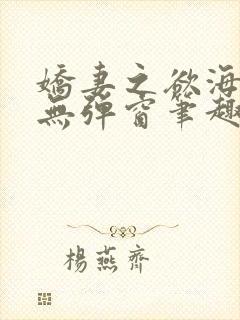 嬌妻之欲海
無彈窗筆趣
楊燕齊